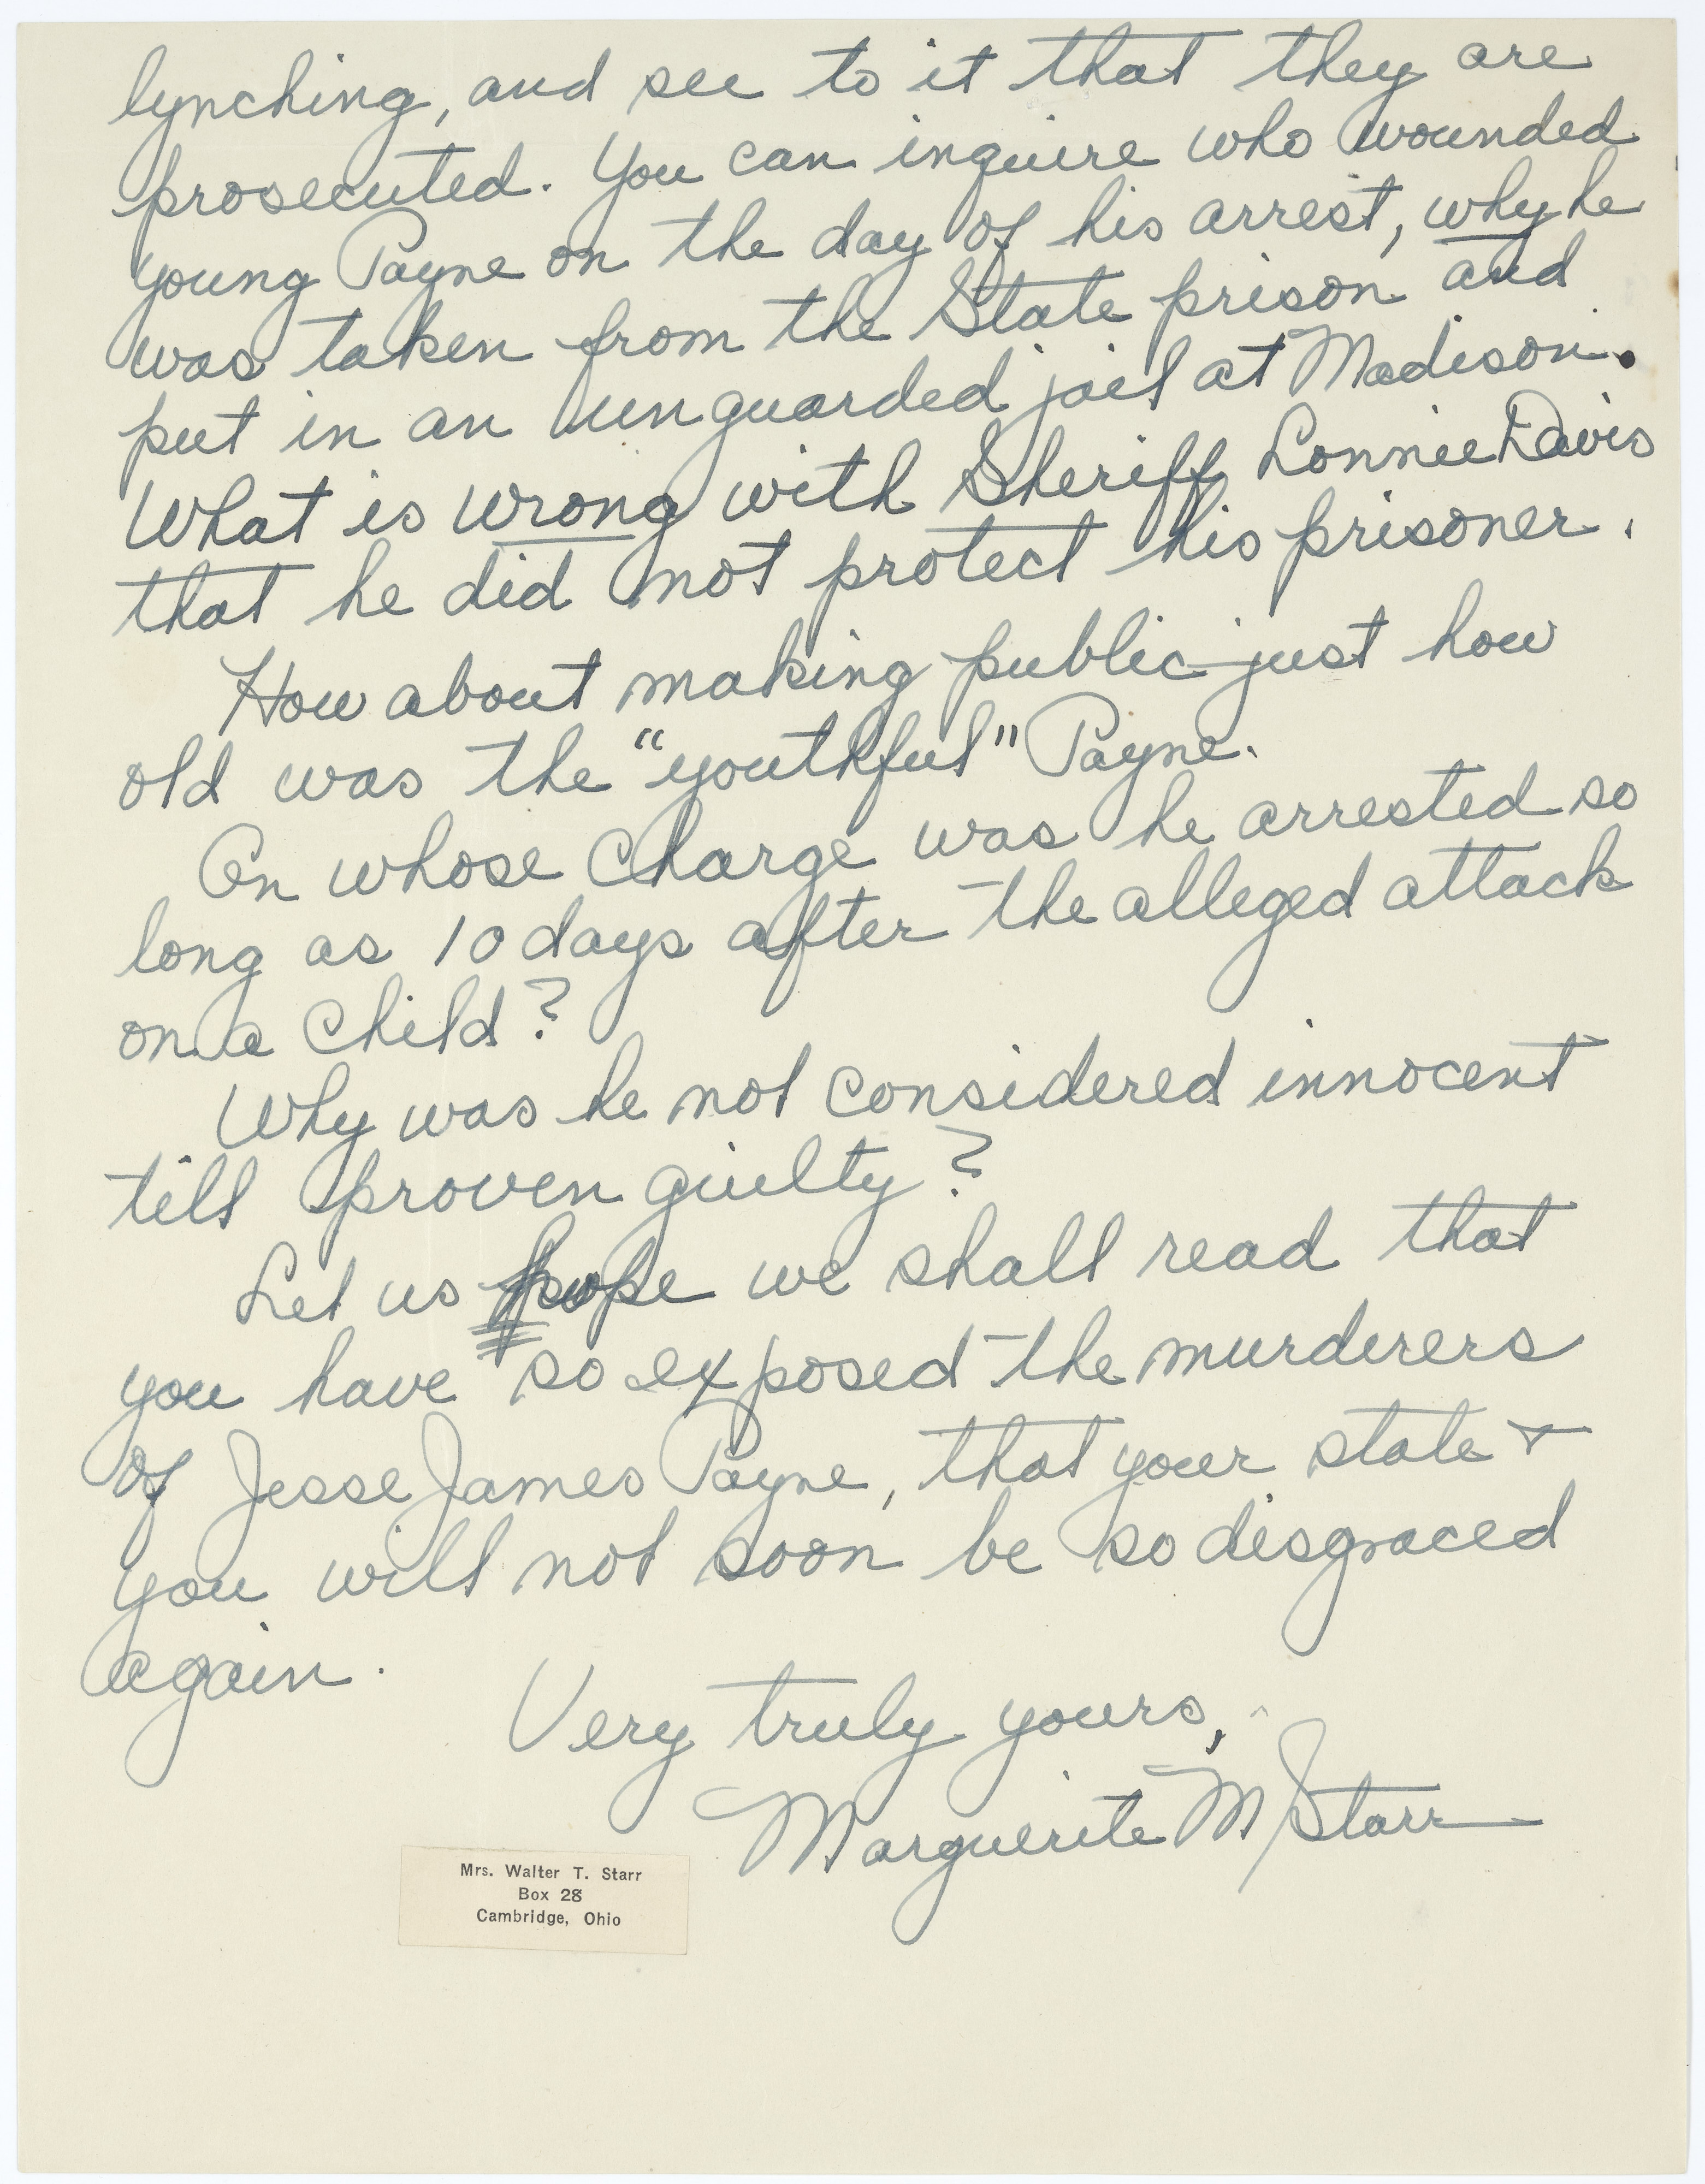 lynching, and see to it that they are
prosecuted. You can inquire who wounded
young Payne on the day of his arrest, why he
was taken from the State prison and
put in an unguarded jail at Madison.
What is wrong with Sheriff Lonnie Davis
that he did not protect his prisoner.
How about making public just how
old was the "youthful" Payne.
On whose charge was he arrested so
long as 10 days after the alleged attack
on a child?
Why was he not considered innocent
till proven guilty?
Let us hope we shall read that
you have so exposed the murderers
of Jesse James Payne, that your state &
you will not soon be so disgraced
again.
Very truly yours,
Marguerite M Starr
Mrs. Walter T. Starr
Box 28
Cambridge, Ohio